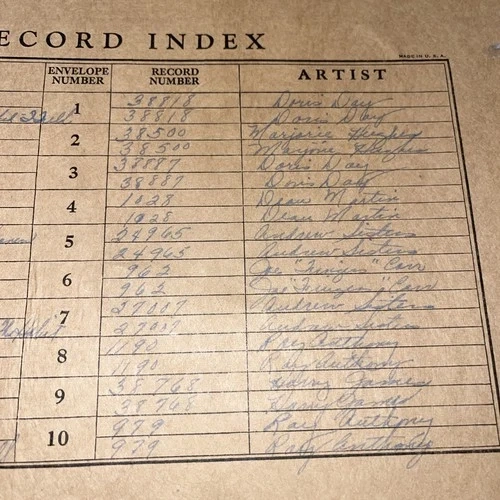 ECORD INDEX
MADE IN U. S. A.
ENVELOPE NUMBER RECORD NUMBER ARTIST
1 38818 Doris Day
38818 Doris Day
2 38500 Marjorie Hughes
38500 Marjorie Hughes
3 38887 Doris Day
38887 Doris Day
4 1028 Dean Martin
1028 Dean Martin
5 24965 Andrew Sisters
24965 Andrew Sisters
6 962 Joe "Fingers" Carr
962 Joe "Fingers" Carr
7 27007 Andrew Sisters
27007 Andrew Sisters
8 1190 Ray Anthony
1190 Ray Anthony
9 38768 Harry James
38768 Harry James
10 979 Ray Anthony
979 Ray Anthony